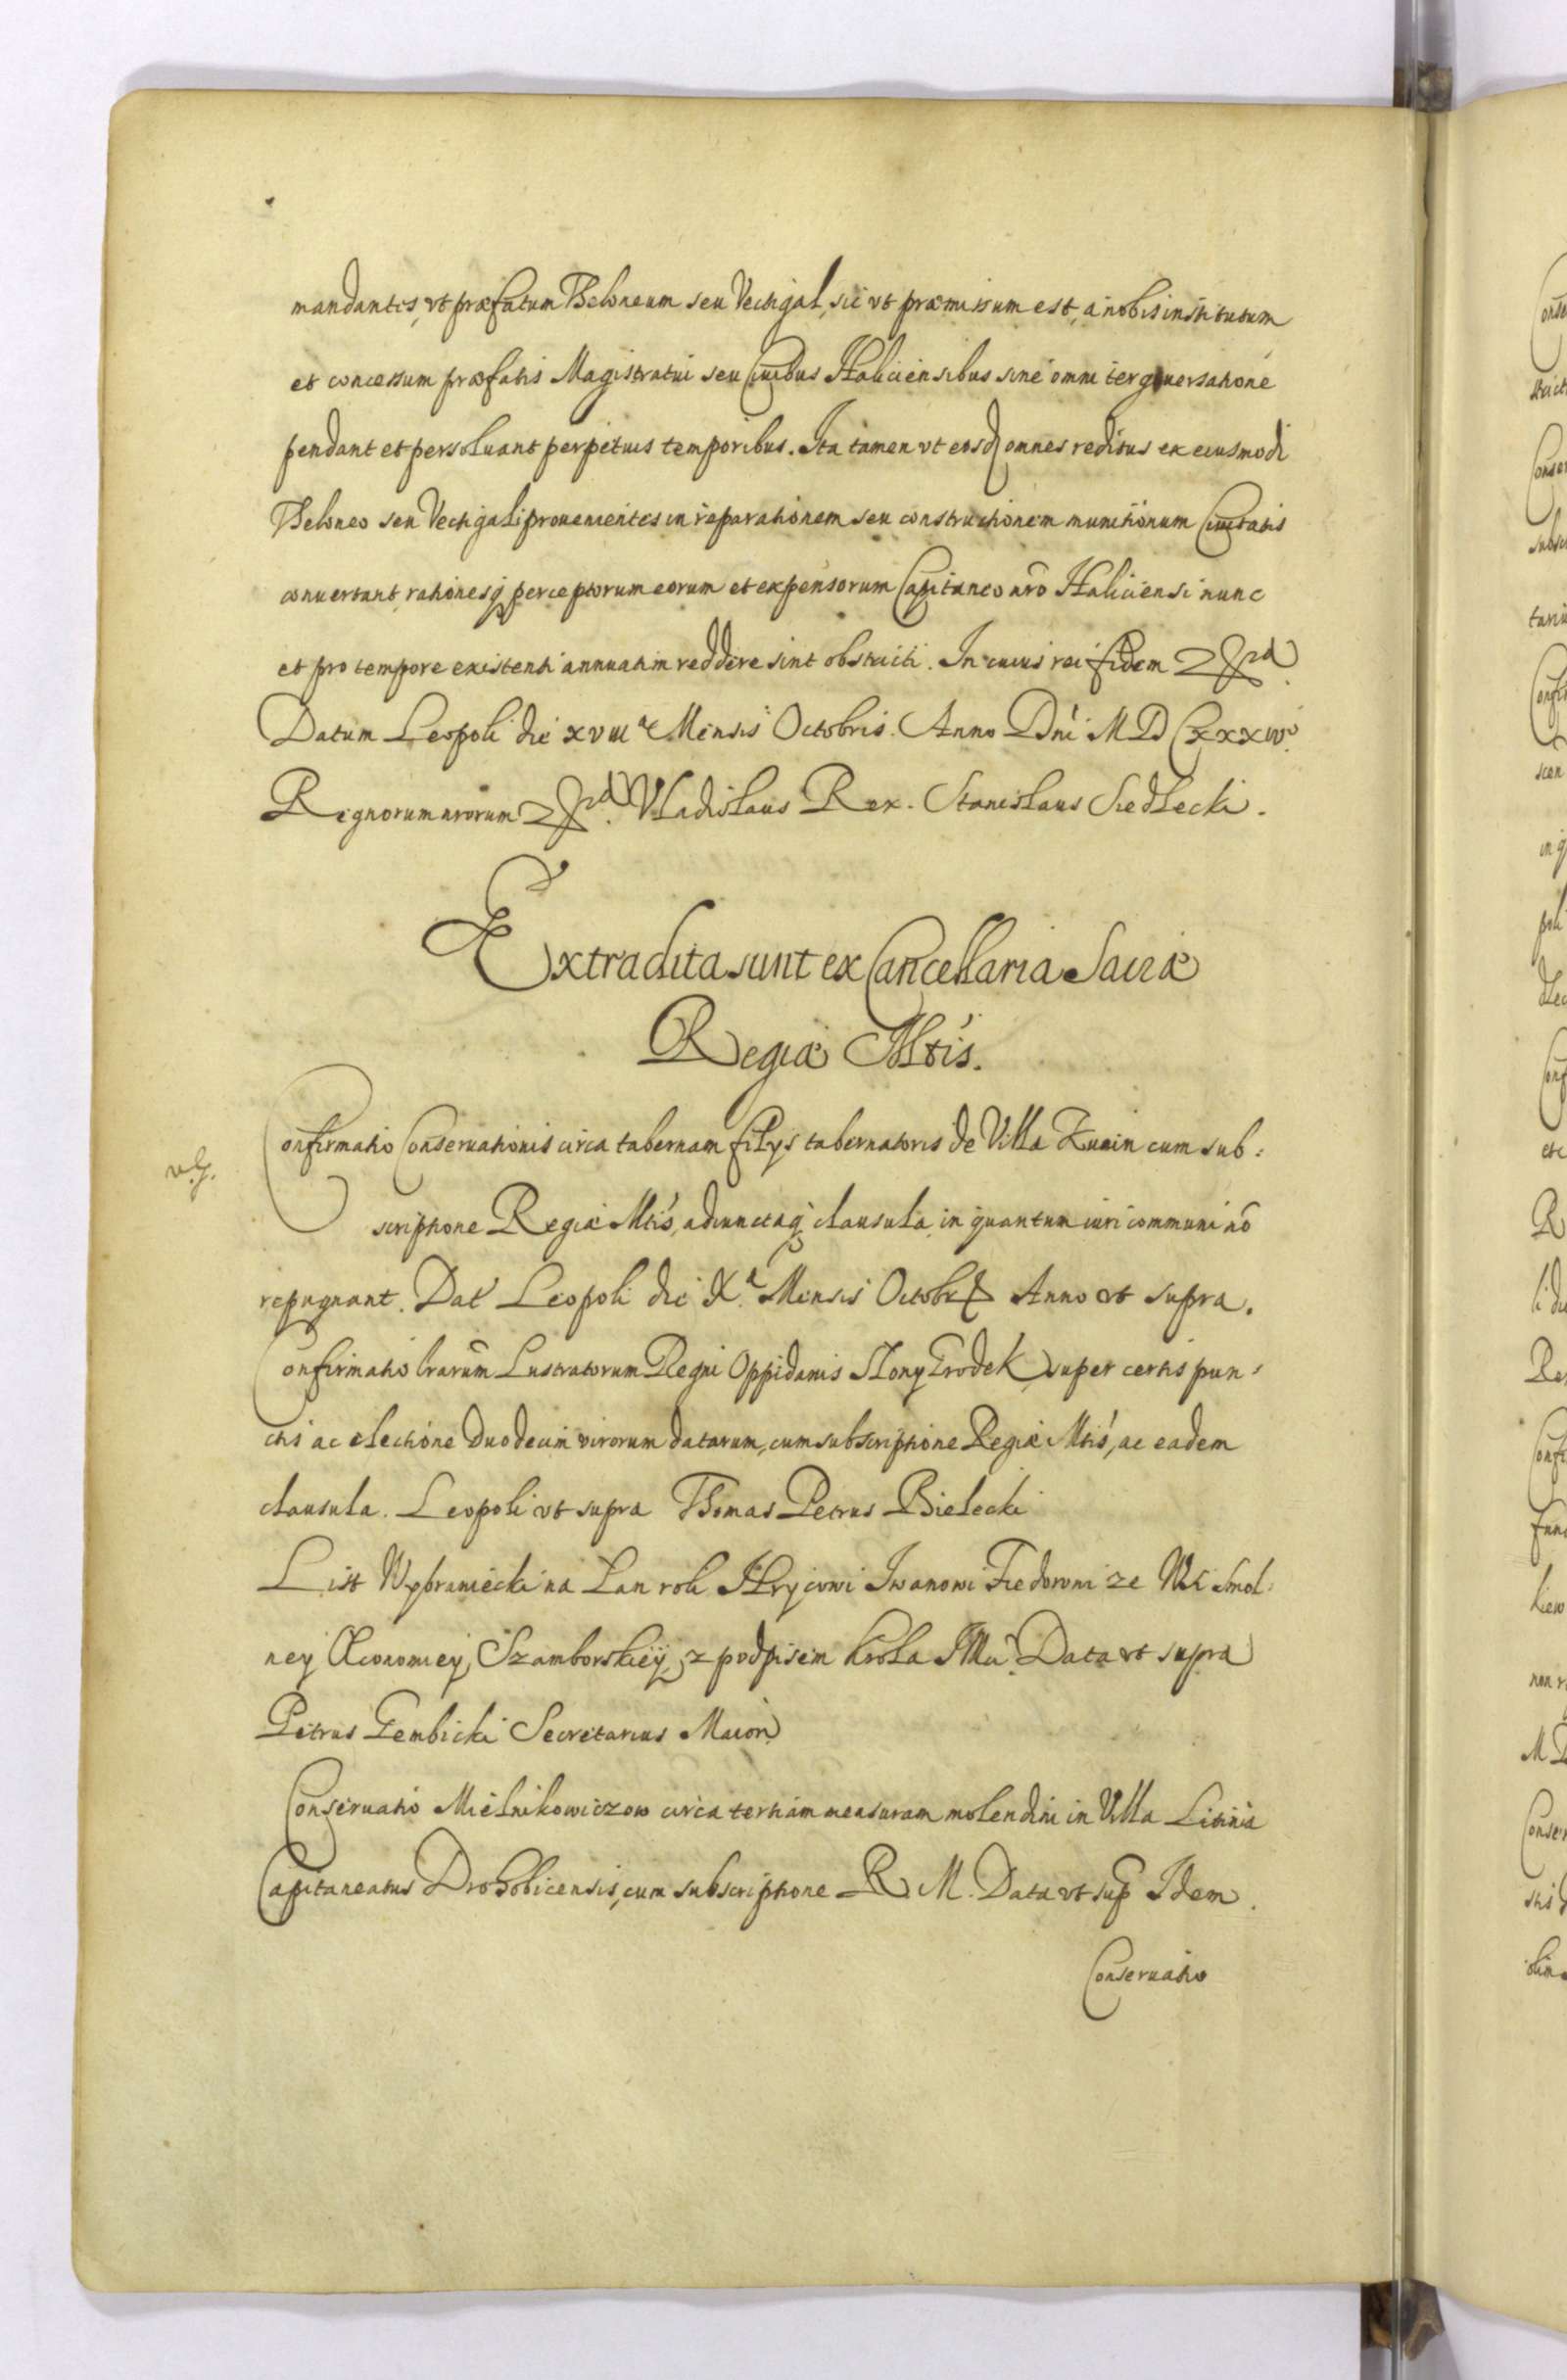 mandantes, vt præfatum Theloneum seu Vectigal, sic vt præmissum est, a nobis institutum
et concessum præfatis Magistratui seu Ciuibus Haliciensibus sine omni tergiuersatione
pendant et persoluant perpetuis temporibus. Ita tamen vt eosd omnes reditus ex eiusmodi
Theloneo seu Vectigali prouenientes in reparationem seu constructionem munitionum Ciuitatis
conuertant, rationesq perceptorum eorum et expensorum Capitaneo nro Haliciensi nunc
et pro tempore existenti annuatim reddere sint obstricti. In cuius rei fidem
Datum Leopoli die xviii a Mensis Octobris. Anno Dni M D C xxxiv o
Regnorum nrorum Vladislaus Rex. Stanislaus Siedlecki.
Extradita sunt ex Cancellaria Sacræ
Regiæ Mtis.
Confirmatio Conseruationis circa tabernam filys tabernatoris de Villa cum sub:
scriptione Regiæ Mtis, adiunctaq clausula, in quantum iuri communi no
repugnant. Dat Leopoli die X a Mensis Octobr Anno vt supra.
Confirmatio lrarum Lustratorum Regni Oppidanis Slony Grodek super certis pun:
ctis ac electione duodecim virorum datarum, cum subscriptione Regiæ Mtis, ac eadem
clausula. Leopoli vt supra Thomas Petrus Bielecki
List Wybraniecki na Lan roli Hrycowi Iwanowi Fiedorowi ze Wsi Smol:
ney Œconomiey Szamborskiey, z podpisem Krola JMci Data vt supra
Petrus Gembicki Secretarius Maior
Conseruatio Mielnikowiczow circa tertiam mensuram molendini in Villa Litinia
Capitaneatus Drohobicensis, cum subscriptione R M. Data vt sup Idem.
Conseruatio